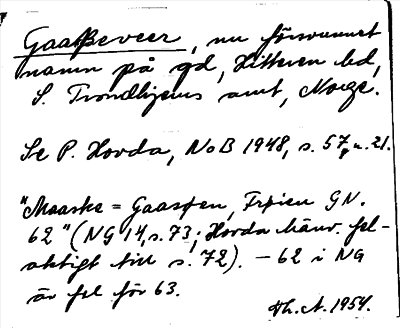 Gaaßeveer, nu försvunnet
namn på gd, Hitteren hd,
S. Trondhjems amt, Norge.
Se P. Hovda, NoB 1948, s. 57, n. 21.
"Maaske = Gaasøen, Frøien GN.
62" (NG 14, s. 73; Hovda hänv. fel-
aktigt till s. 72). – 62 i NG
är fel för 63.
Th. A. 1954.